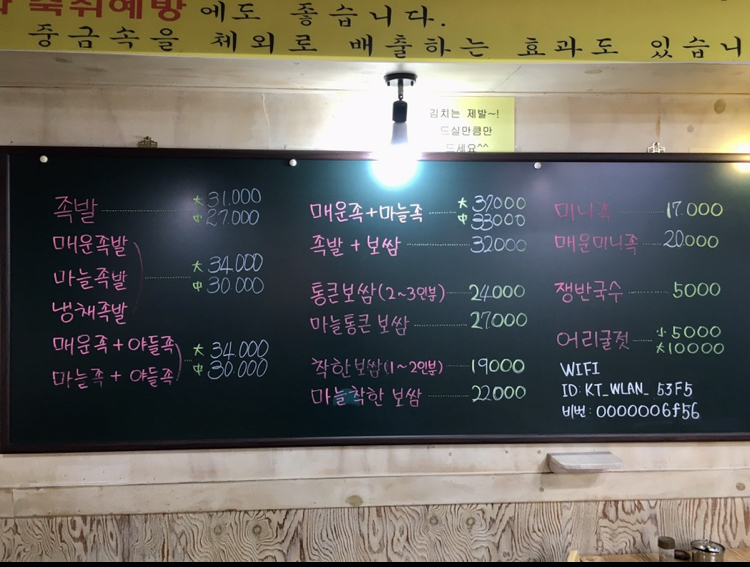 숙취예방에도 좋습니다.
중금속을 체외로 배출하는 효과도 있습니
김치는 제발~!
드실만큼만
드세요^^
족발 大 31.000
中 27.000
매운족발
마늘족발 大 34.000
中 30.000
냉채족발
매운족+야들족 大 34.000
마늘족+야들족 中 30.000
매운족+마늘족 大 37000
中 33000
족발+보쌈 32000
통큰보쌈(2~3인분) 24000
마늘통큰 보쌈 27000
착한보쌈(1~2인분) 19000
마늘착한 보쌈 22000
미니족 17.000
매운미니족 20000
쟁반국수 5000
어리굴젓 小 5000
大 10000
WIFI
ID: KT_WLAN_53F5
비번: 0000006f56